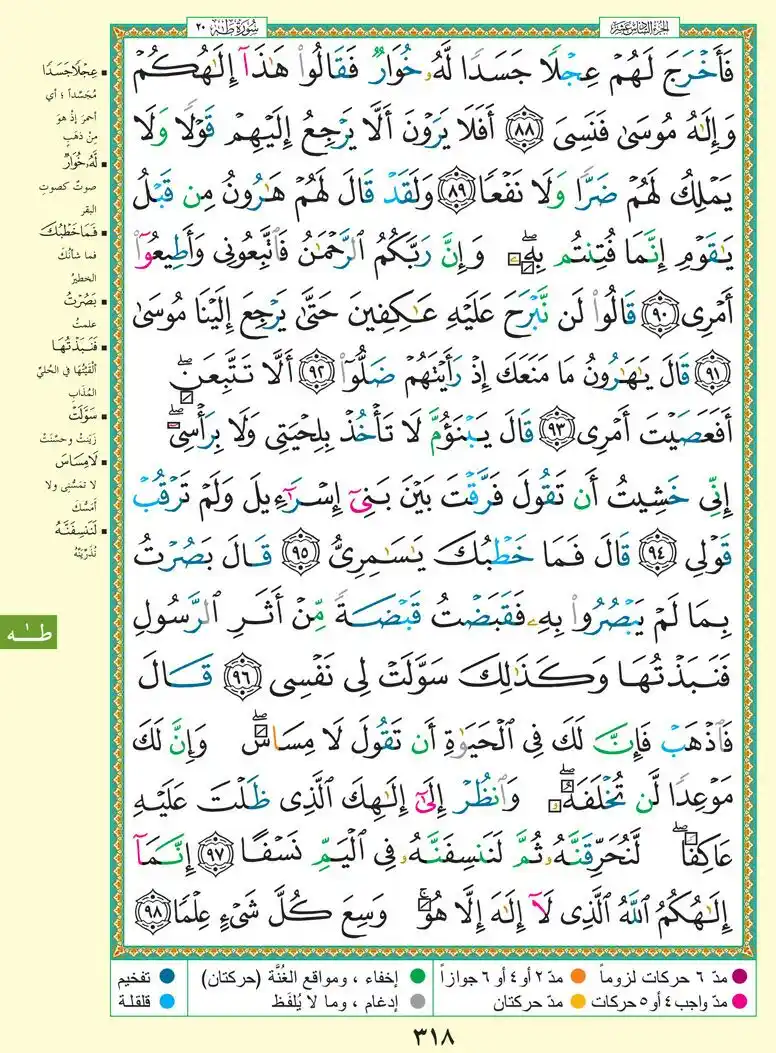 الجزء السادس عشر
سورة طه ٢٠
فَأَخْرَجَ لَهُمْ عِجْلًا جَسَدًا لَّهُۥ خُوَارٌ فَقَالُوا۟ هَٰذَآ إِلَٰهُكُمْ
وَإِلَٰهُ مُوسَىٰ فَنَسِىَ ٨٨ أَفَلَا يَرَوْنَ أَلَّا يَرْجِعُ إِلَيْهِمْ قَوْلًا وَلَا
يَمْلِكُ لَهُمْ ضَرًّا وَلَا نَفْعًا ٨٩ وَلَقَدْ قَالَ لَهُمْ هَٰرُونُ مِن قَبْلُ
يَٰقَوْمِ إِنَّمَا فُتِنتُم بِهِۦ ۖ وَإِنَّ رَبَّكُمُ ٱلرَّحْمَٰنُ فَٱتَّبِعُونِى وَأَطِيعُوٓا۟
أَمْرِى ٩٠ قَالُوا۟ لَن نَّبْرَحَ عَلَيْهِ عَٰكِفِينَ حَتَّىٰ يَرْجِعَ إِلَيْنَا مُوسَىٰ
٩١ قَالَ يَٰهَٰرُونُ مَا مَنَعَكَ إِذْ رَأَيْتَهُمْ ضَلُّوٓا۟ ٩٢ أَلَّا تَتَّبِعَنِ ۖ
أَفَعَصَيْتَ أَمْرِى ٩٣ قَالَ يَبْنَؤُمَّ لَا تَأْخُذْ بِلِحْيَتِى وَلَا بِرَأْسِىٓ ۖ
إِنِّى خَشِيتُ أَن تَقُولَ فَرَّقْتَ بَيْنَ بَنِىٓ إِسْرَٰٓءِيلَ وَلَمْ تَرْقُبْ
قَوْلِى ٩٤ قَالَ فَمَا خَطْبُكَ يَٰسَٰمِرِىُّ ٩٥ قَالَ بَصُرْتُ
بِمَا لَمْ يَبْصُرُوا۟ بِهِۦ فَقَبَضْتُ قَبْضَةً مِّنْ أَثَرِ ٱلرَّسُولِ
فَنَبَذْتُهَا وَكَذَٰلِكَ سَوَّلَتْ لِى نَفْسِى ٩٦ قَالَ
فَٱذْهَبْ فَإِنَّ لَكَ فِى ٱلْحَيَوٰةِ أَن تَقُولَ لَا مِسَاسَ ۖ وَإِنَّ لَكَ
مَوْعِدًا لَّن تُخْلَفَهُۥ ۖ وَٱنظُرْ إِلَىٰٓ إِلَٰهِكَ ٱلَّذِى ظَلْتَ عَلَيْهِ
عَاكِفًا ۖ لَّنُحَرِّقَنَّهُۥ ثُمَّ لَنَنسِفَنَّهُۥ فِى ٱلْيَمِّ نَسْفًا ٩٧ إِنَّمَآ
إِلَٰهُكُمُ ٱللَّهُ ٱلَّذِى لَآ إِلَٰهَ إِلَّا هُوَ ۚ وَسِعَ كُلَّ شَىْءٍ عِلْمًا ٩٨
عِجْلًا جَسَدًا
مُجَسَّداً ؛ أي
أحمرَ إذ هوَ
مِنْ ذهَبٍ
لَّهُۥ خُوَارٌ
صوتٌ كصوتِ
البقر
فَمَا خَطْبُكَ
فما شأنُكَ
الخطيرُ
بَصُرْتُ
علمتُ
فَنَبَذْتُهَا
ألقَيْتُها في الحُليِّ
المُذَابِ
سَوَّلَتْ
زَيَّنتْ وحسَّنَتْ
لَا مِسَاسَ
لا تمَسُّني ولا
أَمَسُّكَ
لَنَنسِفَنَّهُ
نُذَرِّيَنَّهُ
طه
مدّ ٦ حركات لزوماً
مدّ ٢ أو ٤ أو ٦ جوازاً
إخفاء ، ومواقع الغُنَّة (حركتان)
تفخيم
مدّ واجب ٤ أو ٥ حركات
مدّ حركتان
إدغام ، وما لا يُلفَظ
قلقلة
٣١٨